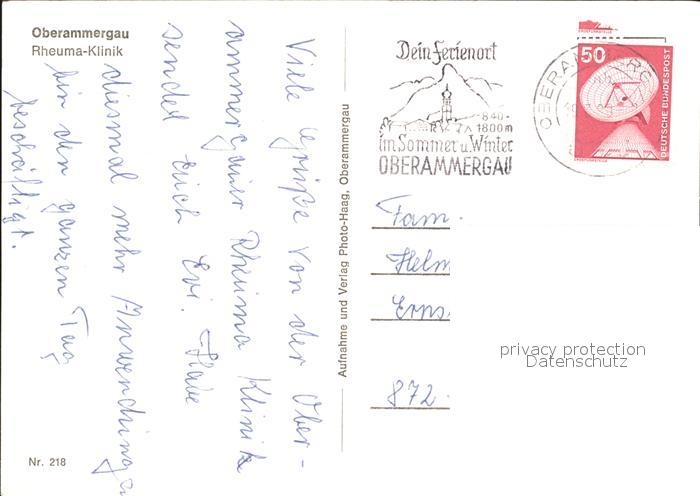 Oberammergau
Rheuma-Klinik
Viele Grüße von der Ober-
ammergauer Rheuma Klinik
sendet Euch Evi. Habe
diesmal mehr Anwendungen
bin den ganzen Tag
beschäftigt.
Nr. 218
Aufnahme und Verlag Photo-Haag, Oberammergau
Dein Ferienort
840-
1800m
im Sommer u. Winter
OBERAMMERGAU
OBERAMMERG
50
DEUTSCHE BUNDESPOST
Fam.
Helm
Erns
872
privacy protection
Datenschutz